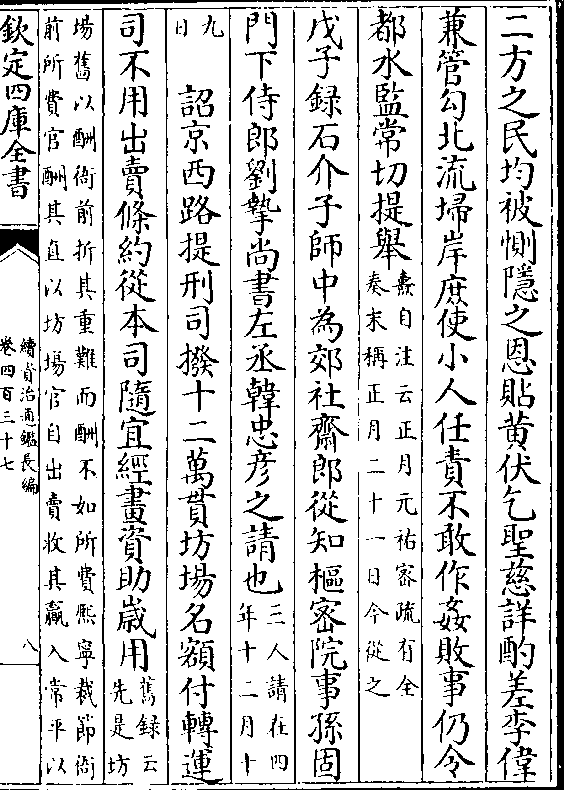 二方之民均被惻隱之恩貼黄伏乞聖慈詳酌差李偉
兼管勾北流埽岸庶使小人任責不敢作姦敗事仍令
都水監常切提舉
燾自注云正月元祐宻疏有全
奏末稱正月二十一日今從之
戊子録石介子師中為郊社齋郎從知樞宻院事孫固
門下侍郎劉摯尚書左丞韓忠彦之請也
三人請在四
年十二月十
九
日
詔京西路提刑司撥十二萬貫坊場名額付轉運
司不用出賣條約從本司隨宜經畫資助歳用
舊録云
先是坊
場舊以酬衙前折其重難而酬不如所費熈寧裁節衙
前所費官酬其直以坊場官自出賣收其贏入常平以
欽定四庫全書
續資治通鑑長編
卷四百三十七
八